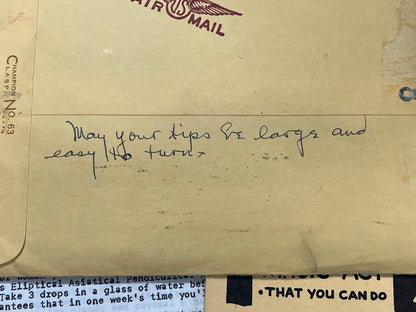 AIR US MAIL
CHAMPION
CLASP No. 63
May your tips be large and
easy to turn.
s Eliptical Asiatical
Take 3 drops in a glass of water bef
antees that in one week's time you'
• THAT YOU CAN DO